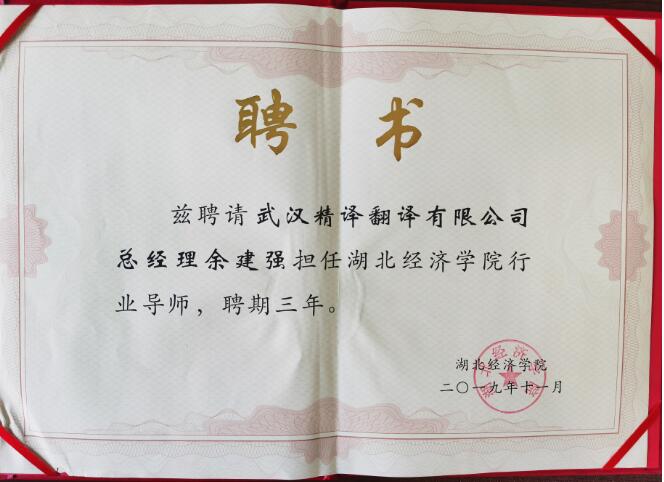 聘书
兹聘请武汉精译翻译有限公司
总经理余建强担任湖北经济学院行
业导师，聘期三年。
湖北经济学院
二〇一九年十一月
湖北经济学院